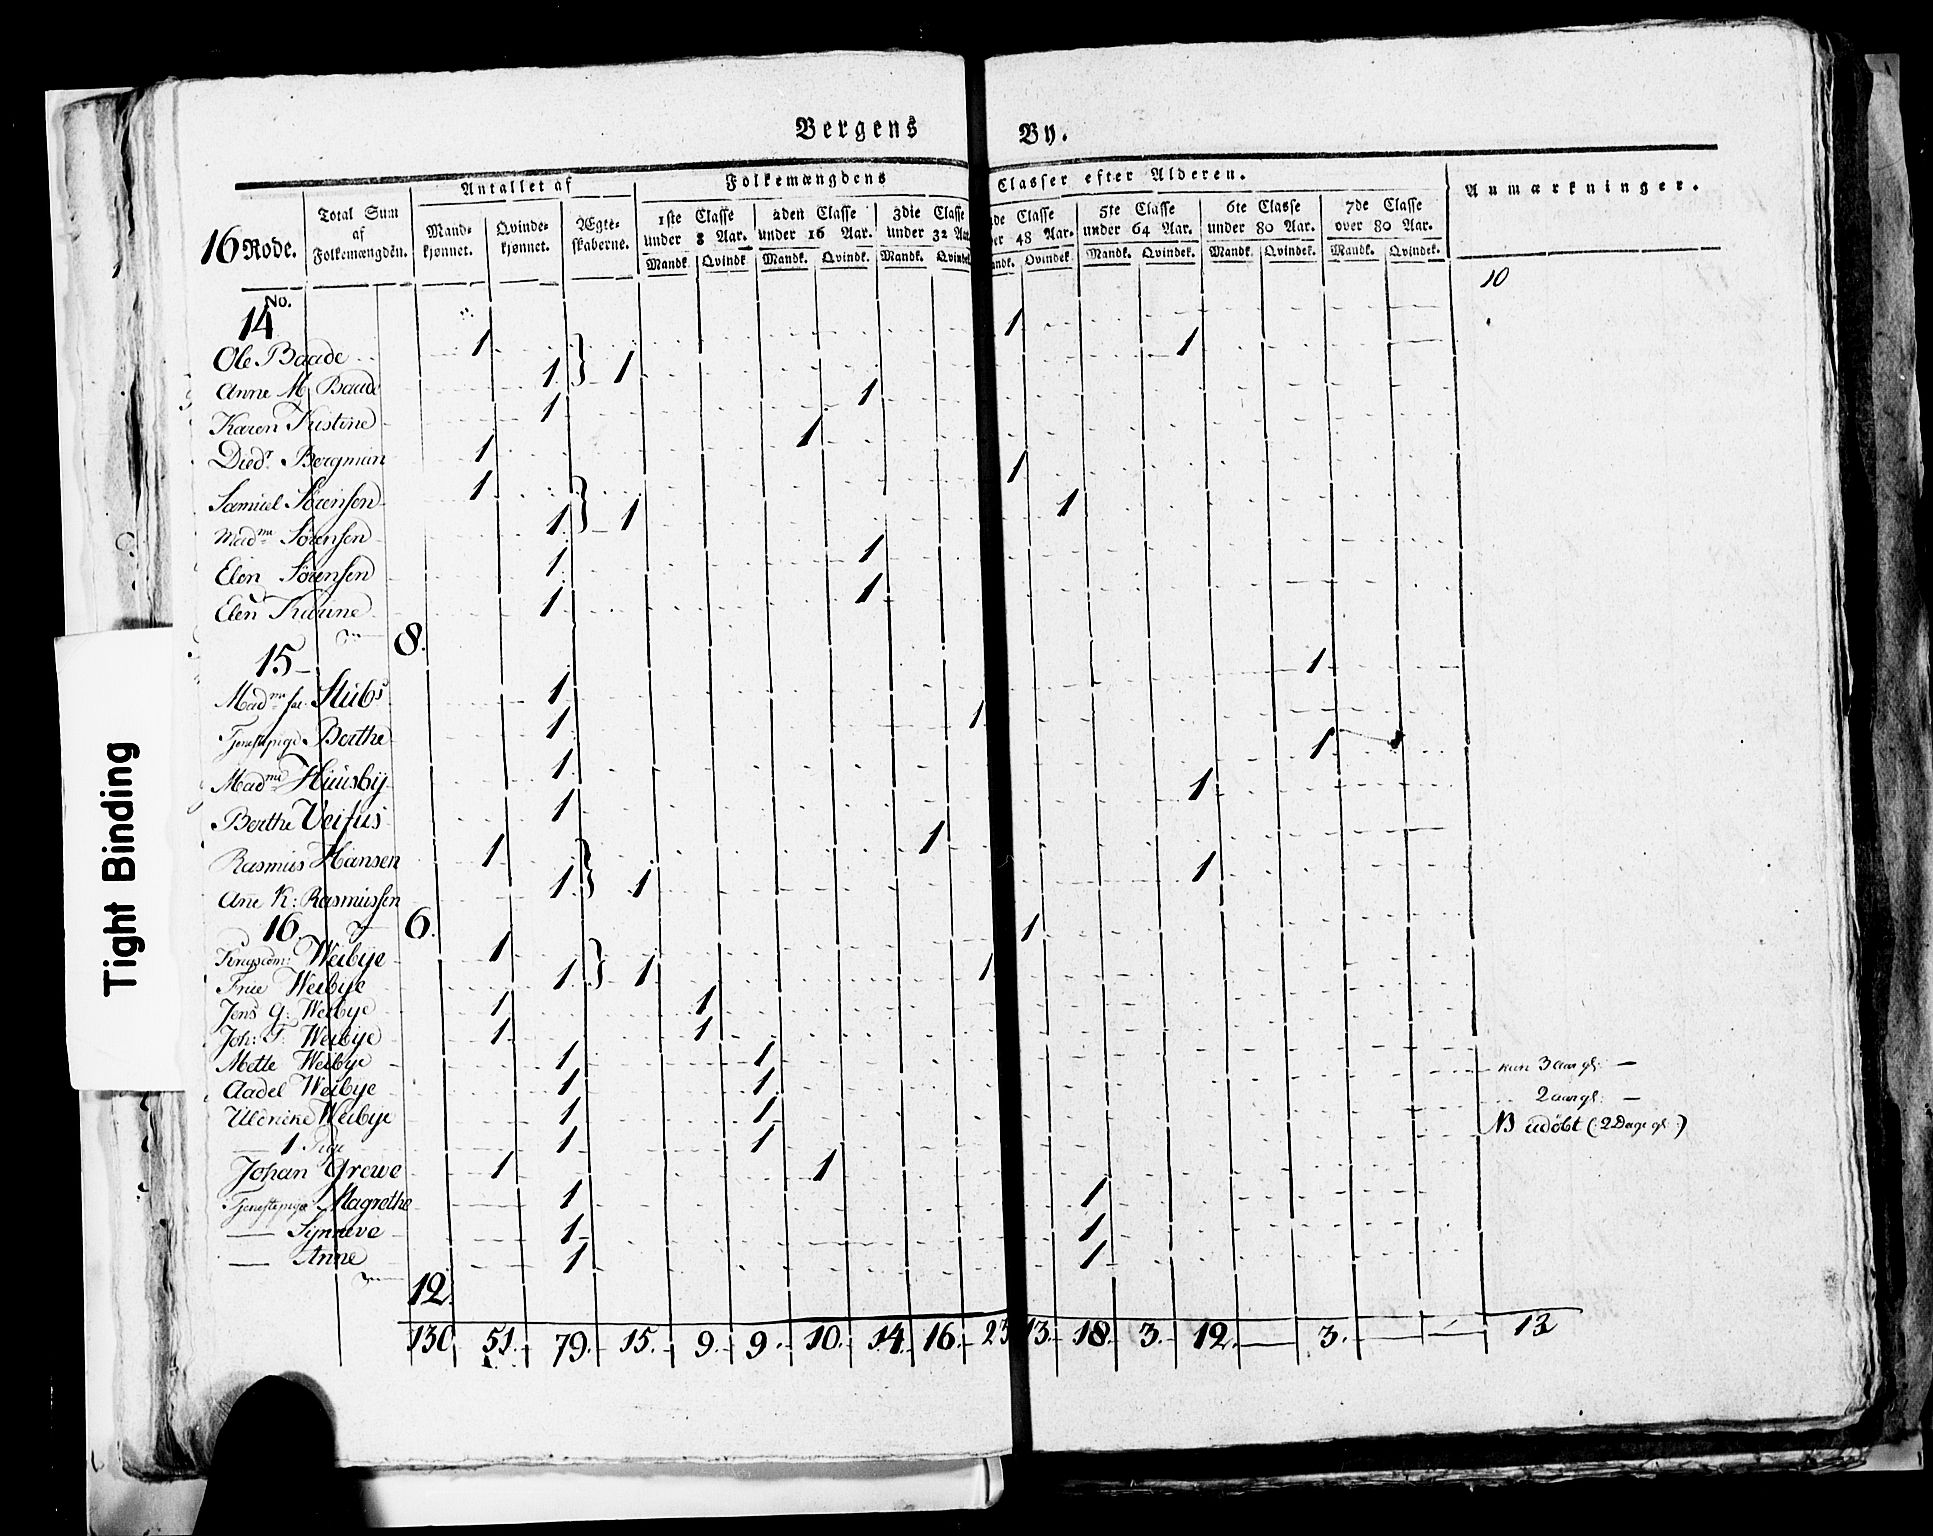 Bergens By.
Antallet af Folkemængdens Classer efter Alderen. Anmærkninger.
16 Rode. Total Sum af Folkemængden. Mandkjønnet. Qvindekjønnet. Ægteskaberne. 1ste Classe under 8 Aar. 2den Classe under 16 Aar. 3die Classe under 32 Aar. 4de Classe under 48 Aar. 5te Classe under 64 Aar. 6te Classe under 80 Aar. 7de Classe over 80 Aar.
Mandk. Qvindk. Mandk. Qvindk. Mandk. Qvindek. Mandk. Qvindek. Mandk. Qvindek. Mandk. Qvindek. Mandk. Qvindek.
No. 10
14
Ole Baade 1 1
Anne M Baade 1 } 1 1
Karen Kristine 1 1
Died.r Bergman 1 1
Samuel Sörensen 1 1
Mad.me Sörensen 1 } 1 1
Elen Sörensen 1 1
Elen Karine 1 1
8.
15
Mad.me sal. Stubs 1 1
Tjenestepige Berthe 1 1
Mad.me Huusby 1 1
Berthe Veitus 1 1
Rasmus Hansen 1 1
Ane K: Rasmussen 1 } 1 1
16. 6.
Krigscom: Weibye 1 1
Frue Weibye 1 } 1 1
Jens G: Weibye 1 1
Joh: F: Weibye 1 1
Mette Weibye 1 1 kun 3 aar gl: —
Aadel Weibye 1 1 2 aar gl: —
Uldrike Weibye 1 1 NB udöbt (: 2 Dage gl :)
— 1 Pige 1 1
Johan Grewe 1 1
Tjenestepige Magrethe 1 1
— Synneve 1 1
— Anne 1 1
12.
130 51. 79. 15. 9. 9. 10. 14. 16. 23 13. 18. 3. 12. — 3. — — 13
Tight Binding